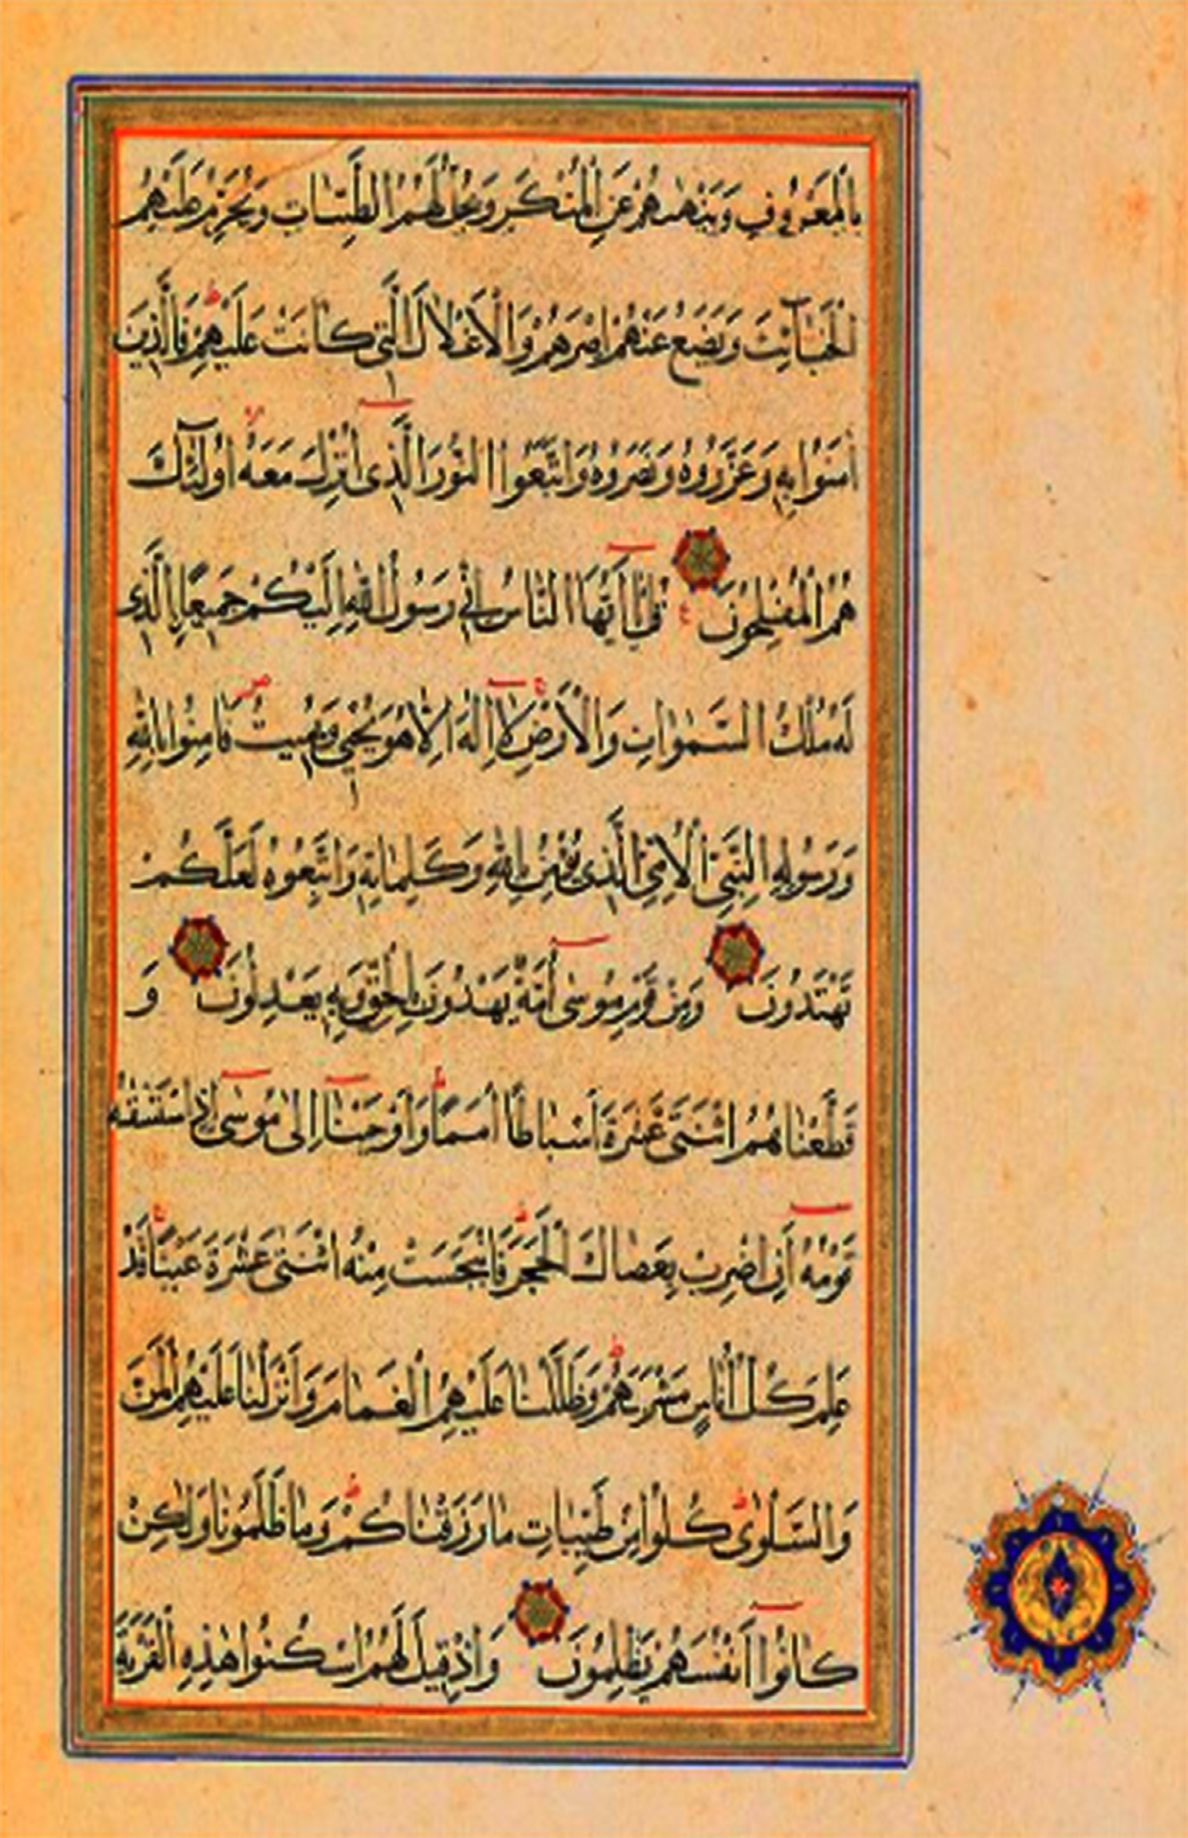 بِالْمَعْرُوفِ وَيَنْهٰيهُمْ عَنِ الْمُنْكَرِ وَيُحِلُّ لَهُمُ الطَّيِّبَاتِ وَيُحَرِّمُ عَلَيْهِمُ
الْخَبَآئِثَ وَيَضَعُ عَنْهُمْ اِصْرَهُمْ وَالْاَغْلَالَ الَّتِي كَانَتْ عَلَيْهِمْ ط فَالَّذِينَ
اٰمَنُوا بِهِ وَعَزَّرُوهُ وَنَصَرُوهُ وَاتَّبَعُوا النُّورَ الَّذِي اُنْزِلَ مَعَهُ اُولٰٓئِكَ
هُمُ الْمُفْلِحُونَ قُلْ يَا اَيُّهَا النَّاسُ اِنِّي رَسُولُ اللّٰهِ اِلَيْكُمْ جَمِيعًا ِالَّذِي
لَهُ مُلْكُ السَّمٰوَاتِ وَالْاَرْضِ ج لَا اِلٰهَ اِلَّا هُوَ يُحْيِي وَيُمِيتُ ص فَاٰمِنُوا بِاللّٰهِ
وَرَسُولِهِ النَّبِيِّ الْاُمِّيِّ الَّذِي يُؤْمِنُ بِاللّٰهِ وَكَلِمَاتِهِ وَاتَّبِعُوهُ لَعَلَّكُمْ
تَهْتَدُونَ وَمِنْ قَوْمِ مُوسٰى اُمَّةٌ يَهْدُونَ بِالْحَقِّ وَبِهِ يَعْدِلُونَ وَ
قَطَّعْنَاهُمُ اثْنَتَيْ عَشْرَةَ اَسْبَاطًا اُمَمًا ط وَاَوْحَيْنَا اِلٰى مُوسٰى اِذِ اسْتَسْقٰيهُ
قَوْمُهُ اَنِ اضْرِبْ بِعَصَاكَ الْحَجَرَ ج فَانْبَجَسَتْ مِنْهُ اثْنَتَيْ عَشْرَةَ عَيْنًا ط قَدْ
عَلِمَ كُلُّ اُنَاسٍ مَشْرَبَهُمْ ط وَظَلَّلْنَا عَلَيْهِمُ الْغَمَامَ وَاَنْزَلْنَا عَلَيْهِمُ الْمَنَّ
وَالسَّلْوٰى ط كُلُوا مِنْ طَيِّبَاتِ مَا رَزَقْنَاكُمْ ط وَمَا ظَلَمُونَا وَلٰكِنْ
كَانُوا اَنْفُسَهُمْ يَظْلِمُونَ وَاِذْ قِيلَ لَهُمُ اسْكُنُوا هٰذِهِ الْقَرْيَةَ